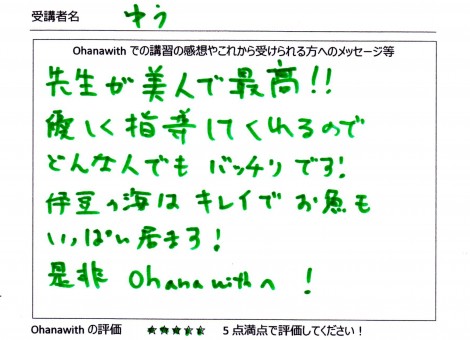 受講者名 ゆう
Ohanawith での講習の感想やこれから受けられる方へのメッセージ等
先生が美人で最高!!
優しく指導してくれるので
どんな人でも バッチリです!
伊豆の海は キレイで お魚も
いっぱい居ます!
是非 Ohanawithへ !
Ohanawith の評価 ★★★★★ 5 点満点で評価してください!